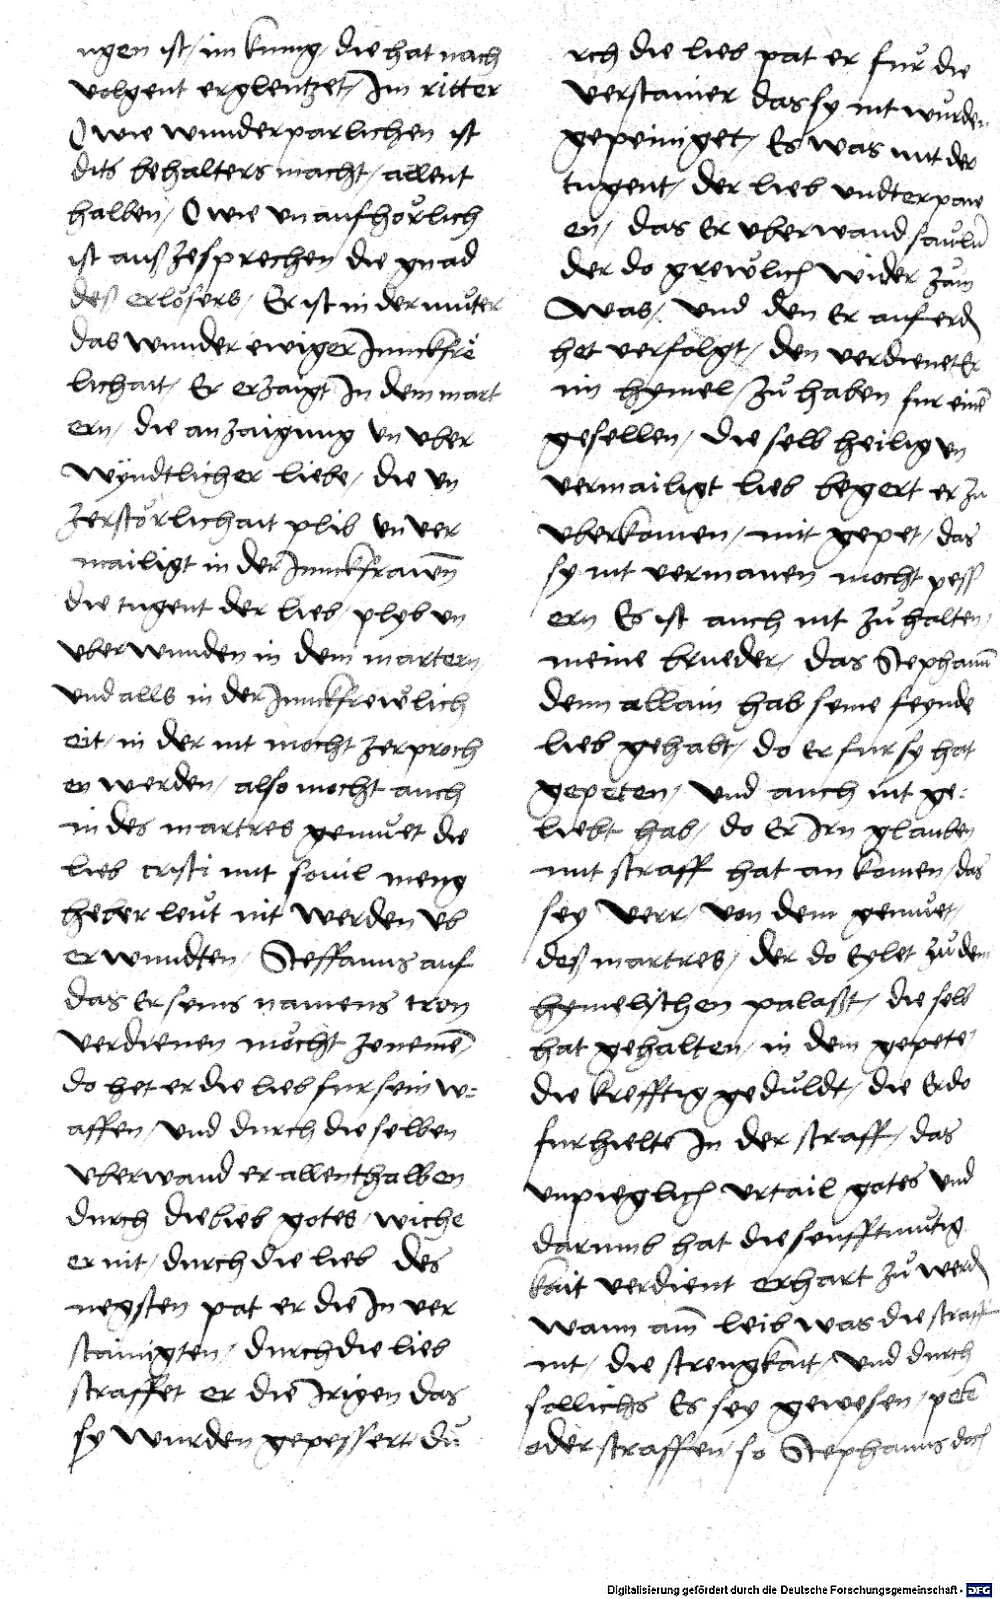 ngen ist / im kunig / die hat nach
volgent erglentzet / Im ritter
O wie wunderparlichen ist
dits behalters macht / allent
halben / O wie vnaufhörlich
ist auß zesprechen die gnad
deß erlösers / Er ist in der muter
das wunder ewiger Junckfrë
lichait / Er erzaigt In dem mart
ern / die anzaigung vnvber
wyndtlicher liebe / die vn
zerstörlichait plib vnver
mailigt in der Junckfrawen̄
die tugent der lieb / plyb vn
vberwunden in dem martern
vnd alls in der Junckfrewlich
eit / in der nit mocht zerproch
en werden / also mocht auch
in des martres gemuet die
lieb cristi mit souil meng
heder leut nit werden vb
erwundten / Steffanus auf
das Er seins namens cron
verdienen möcht zenemē /
do het er die lieb fur sein w=
affen / vnd durch die selben
vberwand er allenthalben
durch die lieb gotes / wiche
er nit / durch die lieb des
negsten pat er die In ver
stainigten / durch die lieb
straffet er die Irigen das
sy wurden gepessert / du
rch die lieb pat er fur die
verstainer das sy nit wurden
gepeiniget / Es was mit der
tugent / der lieb vndterpaw
en / das Er vberwand saulū
der do grewlich wider zam
was / vnd den Er auf erd
het verfolgt / den verdienet Er
im hymel / zu haben fur einē
gesellen / die selb heilig vn
vermailigt lieb begert er zu
vberkomen / mit gepet / das
sy nit vermanen mocht pess
ern Es ist auch nit zu halten /
meine brueder / das Stephanū
denn allain hab seine feynde
lieb gehabt / do er fur sy hat
gepeten / vnd auch nit ge=
liebt hab / do Er Irn glauben
mit straff hat an komen / das
sey verr / von dem gemuet /
deß martres / der do Eylet zu dem
hymelischen palasst / die selb
hat gehalten / in dem gepete /
die krefftig geduldt / die Er do
furhielte In der straff / das
vnpieglich vrtail gotes vnd
darumb hat die senfftmutig
kait verdient erhart zu werd
wann am leib was die straff
nit / die strengkait / vnd durch
sollichs Es sey gewesen / pete
oder straffen / so Stephanus doch
Digitalisierung gefördert durch die Deutsche Forschungsgemeinschaft - DFG